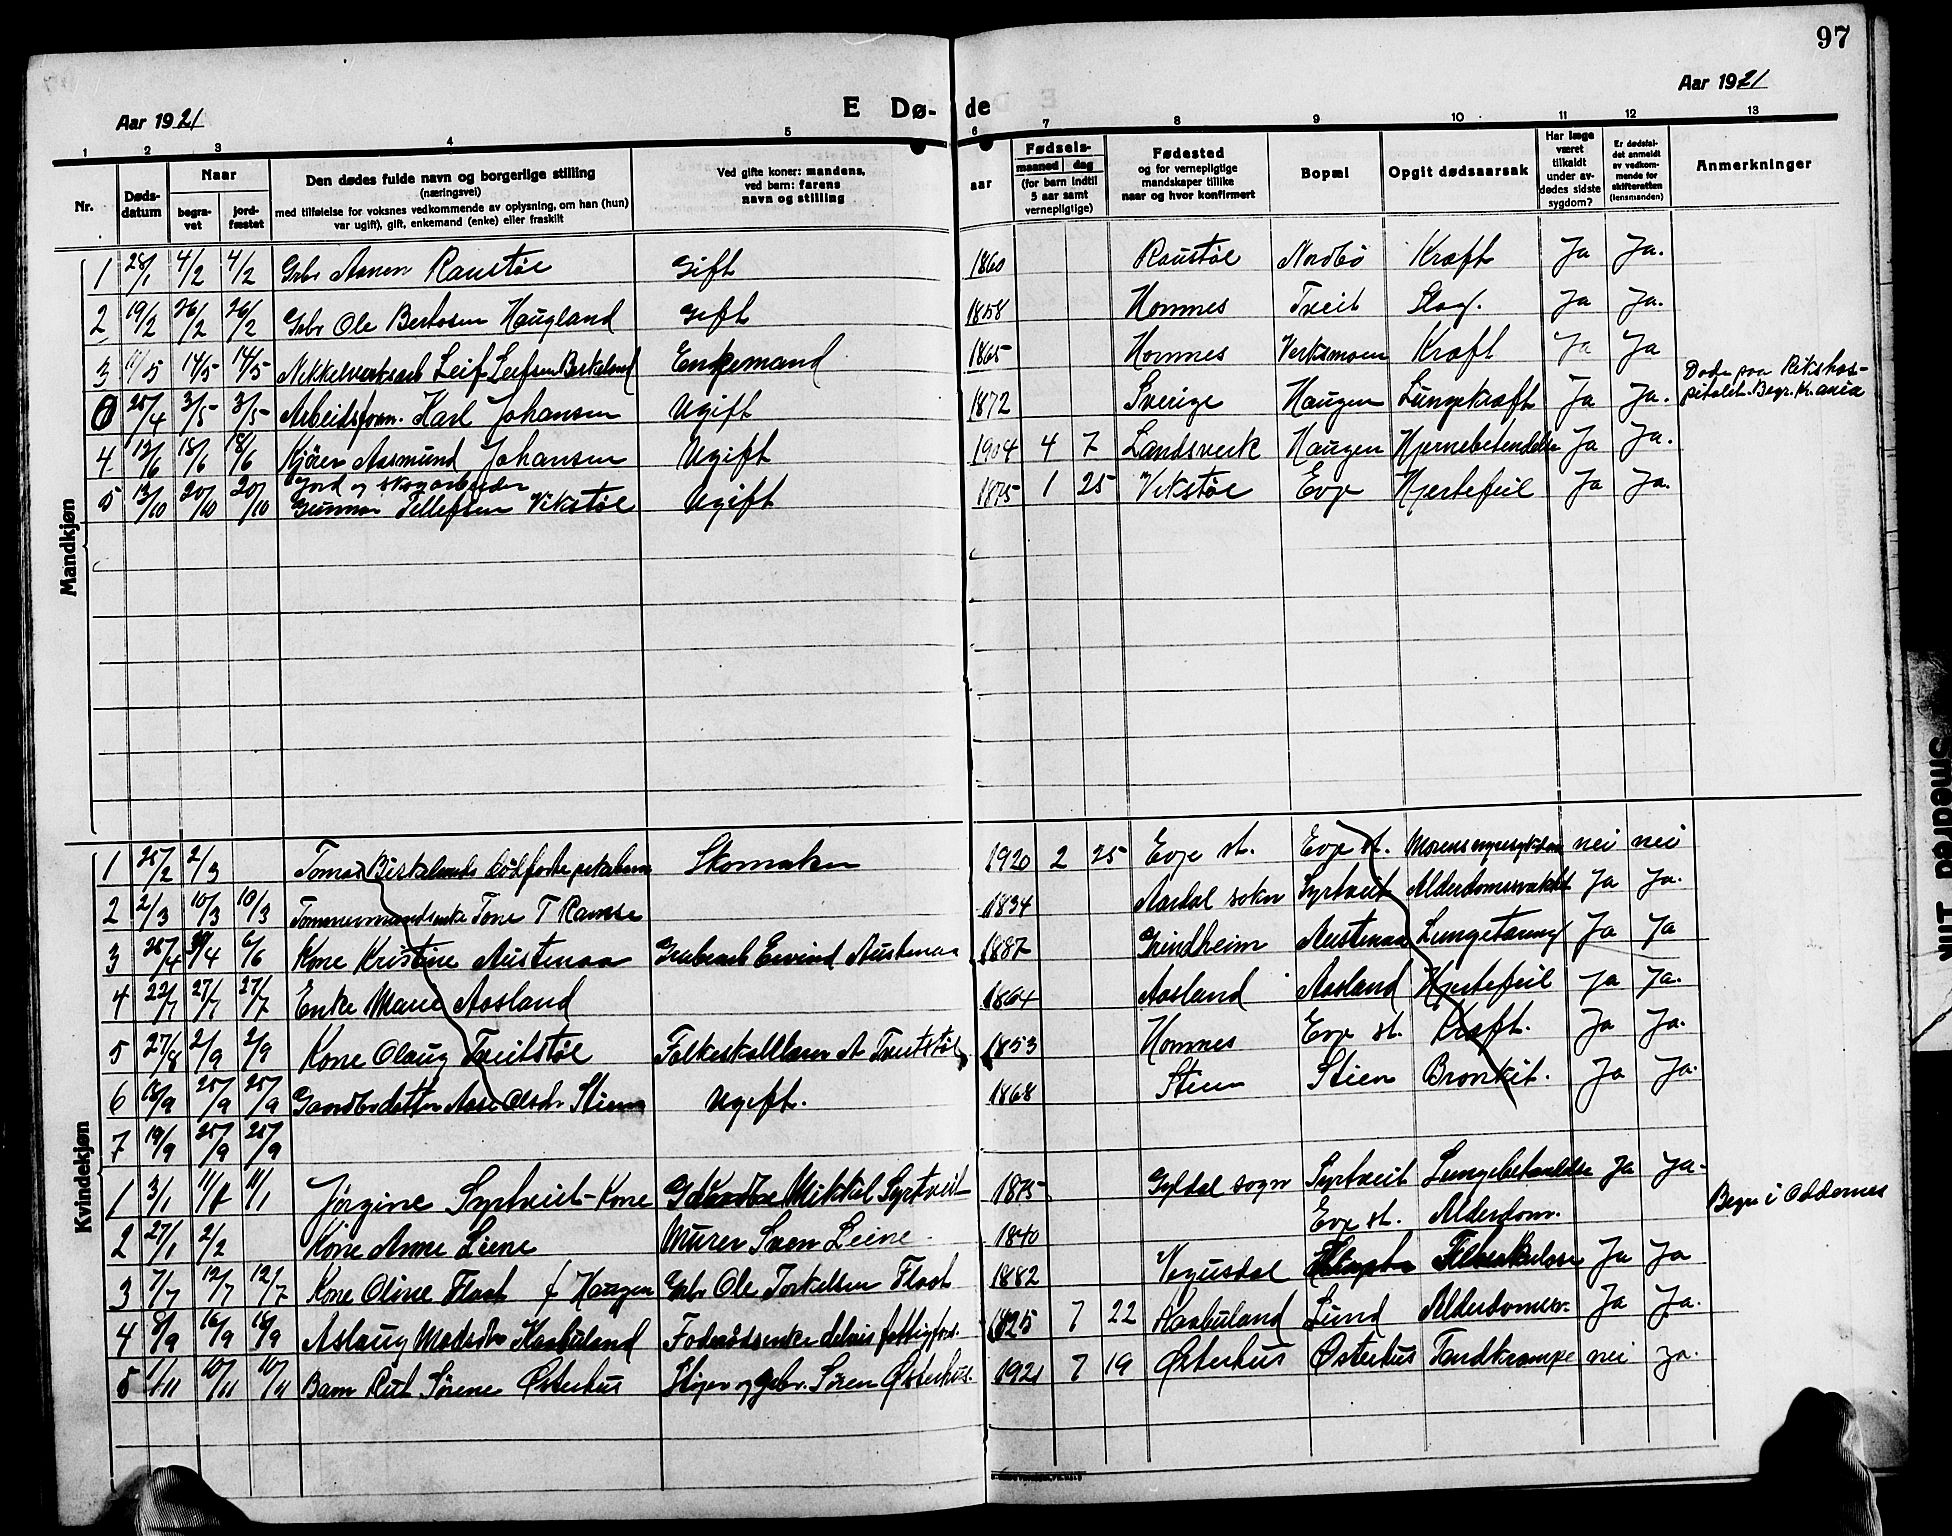 97
Aar 1921 E Dø- de Aar 1921
1 2 3 4 5 6 7 8 9 10 11 12 13
Nr. Døds-datum Naar begra-vet jord-fæstet Den dødes fulde navn og borgerlige stilling (næringsvei) med tilføielse for voksnes vedkommende av oplysning, om han (hun) var ugift), gift, enkemand (enke) eller fraskilt Ved gifte koner: mandens, ved barn: farens navn og stilling aar Fødsels- maaned dag (for barn indtil 5 aar samt vernepligtige) Fødested og for vernepligtige mandskaper tillike naar og hvor konfirmert Bopæl Opgit dødsaarsak Har læge været tilkaldt under av-dødes sidste sygdom? Er dødsfal-det anmeldt av vedkom-mende for skifteretten (lensmanden) Anmerkninger
Mandkjøn
1 28/1 4/2 4/2 Gbr Aanen Raustøl Gift 1860 Raustøl Nordbø Kræft Ja Ja.
2 19/2 26/2 26/2 Gbr Ole Bertosen Haugland Gift 1858 Hommes Tveit Slag. Ja Ja.
3 11/5 14/5 14/5 Nikkelverksarb Leif Leifsen Birkeland Enkemand 1865 Hommes Verksmoen Kræft Ja Ja
0 25/4 3/5 3/5 Arbeidsform. Karl Johansen Ugift 1872 Sverige Haugen Lungekræft Ja Ja. Døde paa Rikshos-pitalet. Begr. Kr.ania
4 12/6 18/6 18/6 Kjører Aasmund Johansen Ugift 1904 4 7 Landsverk Haugen Hjernebetendelse Ja Ja.
5 13/10 20/10 20/10 Jord og skogarbeider Gunnar Tellefsen Vikstøl Ugift 1875 1 25 Vikstøl Evje Hjertefeil Ja Ja.
Kvindekjøn
1 25/2 2/3 Tomas Birkelands dødfødte pikebarn Skomaker 1920 2 25 Evje st. Evje st. Morens nyresykdom nei nei
2 2/3 10/3 10/3 Tømmermandsenke Tone T Ramse 1834 Aardal sokn Syrtveit Alderdomssvakhet Ja Ja.
3 25/4 30/4 6/6 Kone Kristine Austenaa Grubearb Eivind Austenaa 1887 Grindheim Austenaa Lungetæring Ja Ja
4 22/7 27/7 27/7 Enke Marie Aasland 1864 Aasland Aasland Hjertefeil Ja Ja.
5 27/8 2/9 2/9 Kone Olaug Tveitstøl Folkeskolelærer A Tveitstøl 1853 Hommes Evje st. Kræft. Ja Ja.
6 18/9 25/9 25/9 Gaardbrdatter Aase Olsdr Stien Ugift. 1868 Stien Stien Bronkit. Ja Ja.
7 19/9 25/9 25/9
1 3/1 11/1 11/1 Jørgine Syrtveit-Kone Gaardbr Mikkel Syrtveit 1875 Gyldal sogn Syrtveit Lungebetændelse Ja Ja.
2 27/1 2/2 Kone Anne Leine Murer Sven Leine 1840 Evje st. Alderdom. Begr i Oddernes
3 7/7 12/7 12/7 Kone Oline Flaat f Haugen Gbr Ole Torkelsen Flaat 1882 Vegusdal Tuberkulose Ja Ja
4 8/9 16/9 16/9 Aslaug Madsdtr Haabuland Foderådsenke delvis fattigfors. 1825 7 22 Haabuland Lund Alderdomssv. Ja Ja.
5 1/11 10/11 10/11 Barn Rut Sørene Østerhus Skojer og gbr. Søren Østerhus. 1921 7 19 Østerhus Østerhus Tandkrampe nei Ja.